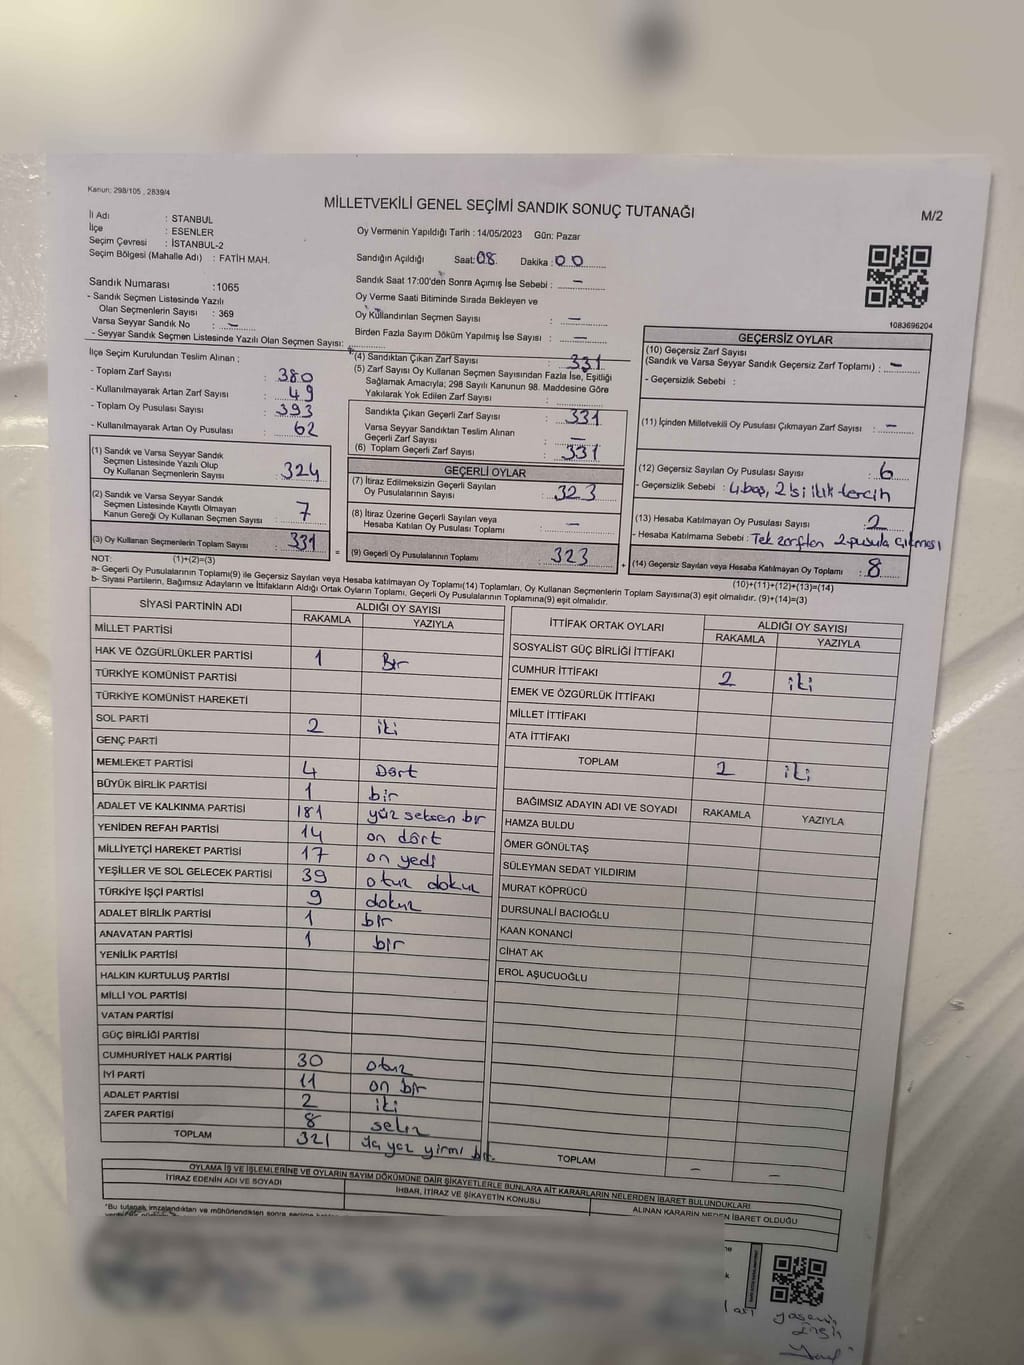 Kanun: 298/105 , 2839/4
MİLLETVEKİLİ GENEL SEÇİMİ SANDIK SONUÇ TUTANAĞI
M/2
İl Adı : STANBUL
İlçe : ESENLER
Seçim Çevresi : İSTANBUL-2
Seçim Bölgesi (Mahalle Adı) : FATİH MAH.
Sandık Numarası :1065
- Sandık Seçmen Listesinde Yazılı
Olan Seçmenlerin Sayısı : 369
Varsa Seyyar Sandık No : -
- Seyyar Sandık Seçmen Listesinde Yazılı Olan Seçmen Sayısı:
İlçe Seçim Kurulundan Teslim Alınan ;
- Toplam Zarf Sayısı : 380
- Kullanılmayarak Artan Zarf Sayısı : 49
- Toplam Oy Pusulası Sayısı : 393
- Kullanılmayarak Artan Oy Pusulası : 62
(1) Sandık ve Varsa Seyyar Sandık
Seçmen Listesinde Yazılı Olup
Oy Kullanan Seçmenlerin Sayısı : 324
(2) Sandık ve Varsa Seyyar Sandık
Seçmen Listesinde Kayıtlı Olmayan
Kanun Gereği Oy Kullanan Seçmen Sayısı : 7
(3) Oy Kullanan Seçmenlerin Toplam Sayısı : 331
Oy Vermenin Yapıldığı Tarih : 14/05/2023 Gün: Pazar
Sandığın Açıldığı Saat: 08 Dakika : 00
Sandık Saat 17:00'den Sonra Açımış İse Sebebi : -
Oy Verme Saati Bitiminde Sırada Bekleyen ve
Oy Kullandırılan Seçmen Sayısı : -
Birden Fazla Sayım Döküm Yapılmış İse Sayısı : -
(4) Sandıktan Çıkan Zarf Sayısı : 331
(5) Zarf Sayısı Oy Kullanan Seçmen Sayısından Fazla İse, Eşitliği
Sağlamak Amacıyla; 298 Sayılı Kanunun 98. Maddesine Göre
Yakılarak Yok Edilen Zarf Sayısı :
Sandıkta Çıkan Geçerli Zarf Sayısı : 331
Varsa Seyyar Sandıktan Teslim Alınan
Geçerli Zarf Sayısı : -
(6) Toplam Geçerli Zarf Sayısı : 331
GEÇERLİ OYLAR
(7) İtiraz Edilmeksizin Geçerli Sayılan
Oy Pusulalarının Sayısı : 323
(8) İtiraz Üzerine Geçerli Sayılan veya
Hesaba Katılan Oy Pusulası Toplamı : -
= (9) Geçerli Oy Pusulalarının Toplamı : 323 +
1083696204
GEÇERSİZ OYLAR
(10) Geçersiz Zarf Sayısı
(Sandık ve Varsa Seyyar Sandık Geçersiz Zarf Toplamı) : -
- Geçersizlik Sebebi :
(11) İçinden Milletvekili Oy Pusulası Çıkmayan Zarf Sayısı : -
(12) Geçersiz Sayılan Oy Pusulası Sayısı : 6
- Geçersizlik Sebebi : 4 boş, 2'si ilk tercih
(13) Hesaba Katılmayan Oy Pusulası Sayısı : 2
- Hesaba Katılmama Sebebi : Tek zarftan 2 pusula çıkması
(14) Geçersiz Sayılan veya Hesaba Katılmayan Oy Toplamı : 8
NOT: (1)+(2)=(3)
(10)+(11)+(12)+(13)=(14)
a- Geçerli Oy Pusulalarının Toplamı(9) ile Geçersiz Sayılan veya Hesaba katılmayan Oy Toplamı(14) Toplamları, Oy Kullanan Seçmenlerin Toplam Sayısına(3) eşit olmalıdır. (9)+(14)=(3)
b- Siyasi Partilerin, Bağımsız Adayların ve İttifakların Aldığı Ortak Oyların Toplamı, Geçerli Oy Pusulalarının Toplamına(9) eşit olmalıdır.
SİYASİ PARTİNİN ADI ALDIĞI OY SAYISI
RAKAMLA YAZIYLA
MİLLET PARTİSİ
HAK VE ÖZGÜRLÜKLER PARTİSİ 1 Bir
TÜRKİYE KOMÜNİST PARTİSİ
TÜRKİYE KOMÜNİST HAREKETİ
SOL PARTİ 2 iki
GENÇ PARTİ
MEMLEKET PARTİSİ 4 Dört
BÜYÜK BİRLİK PARTİSİ 1 bir
ADALET VE KALKINMA PARTİSİ 181 yüz seksen bir
YENİDEN REFAH PARTİSİ 14 on dört
MİLLİYETÇİ HAREKET PARTİSİ 17 on yedi
YEŞİLLER VE SOL GELECEK PARTİSİ 39 otuz dokuz
TÜRKİYE İŞÇİ PARTİSİ 9 dokuz
ADALET BİRLİK PARTİSİ 1 bir
ANAVATAN PARTİSİ 1 bir
YENİLİK PARTİSİ
HALKIN KURTULUŞ PARTİSİ
MİLLİ YOL PARTİSİ
VATAN PARTİSİ
GÜÇ BİRLİĞİ PARTİSİ
CUMHURİYET HALK PARTİSİ 30 otuz
İYİ PARTİ 11 on bir
ADALET PARTİSİ 2 iki
ZAFER PARTİSİ 8 sekiz
TOPLAM 321 üç yüz yirmi bir
İTTİFAK ORTAK OYLARI ALDIĞI OY SAYISI
RAKAMLA YAZIYLA
SOSYALİST GÜÇ BİRLİĞİ İTTİFAKI
CUMHUR İTTİFAKI 2 iki
EMEK VE ÖZGÜRLÜK İTTİFAKI
MİLLET İTTİFAKI
ATA İTTİFAKI
TOPLAM 2 iki
BAĞIMSIZ ADAYIN ADI VE SOYADI RAKAMLA YAZIYLA
HAMZA BULDU
ÖMER GÖNÜLTAŞ
SÜLEYMAN SEDAT YILDIRIM
MURAT KÖPRÜCÜ
DURSUNALİ BACIOĞLU
KAAN KONANCİ
CİHAT AK
EROL AŞUCUOĞLU
TOPLAM - -
OYLAMA İŞ VE İŞLEMLERİNE VE OYLARIN SAYIM DÖKÜMÜNE DAİR ŞİKAYETLERLE BUNLARA AİT KARARLARIN NELERDEN İBARET BULUNDUKLARI
İTİRAZ EDENİN ADI VE SOYADI İHBAR, İTİRAZ VE ŞİKAYETİN KONUSU ALINAN KARARIN NEDEN İBARET OLDUĞU
*Bu tutanak imzalandıktan ve mühürlendikten sonra